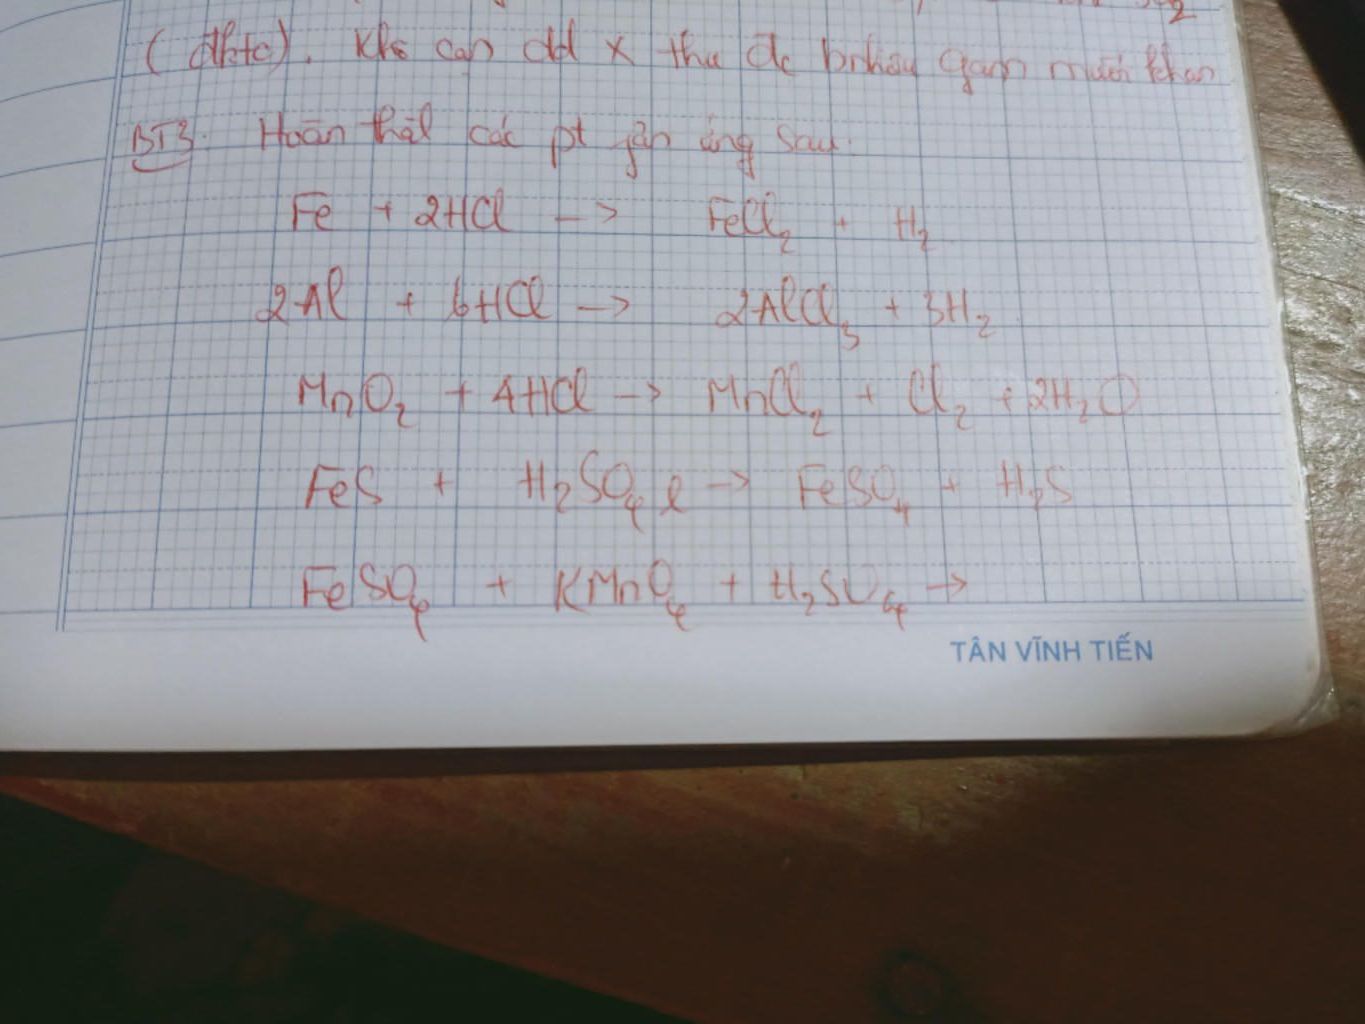 (đktc). Khi cạn dd X thu đc bnhiêu gam muối khan
BT3. Hoàn thàl các pt pản ứng sau:
Fe + 2HCl -> FeCl₂ + H₂
2Al + 6HCl -> 2AlCl₃ + 3H₂
MnO₂ + 4HCl -> MnCl₂ + Cl₂ + 2H₂O
FeS + H₂SO₄ l -> FeSO₄ + H₂S
FeSO₄ + KMnO₄ + H₂SO₄ ->
TÂN VĨNH TIẾN